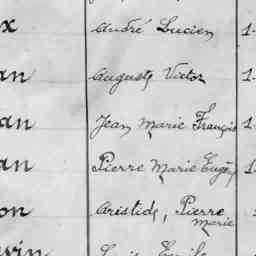 x André Lucien 1
an Auguste Victor 1
an Jean Marie François 1
an Pierre Marie Eugène 1
on Aristide, Pierre
Marie
vin Louis Emile